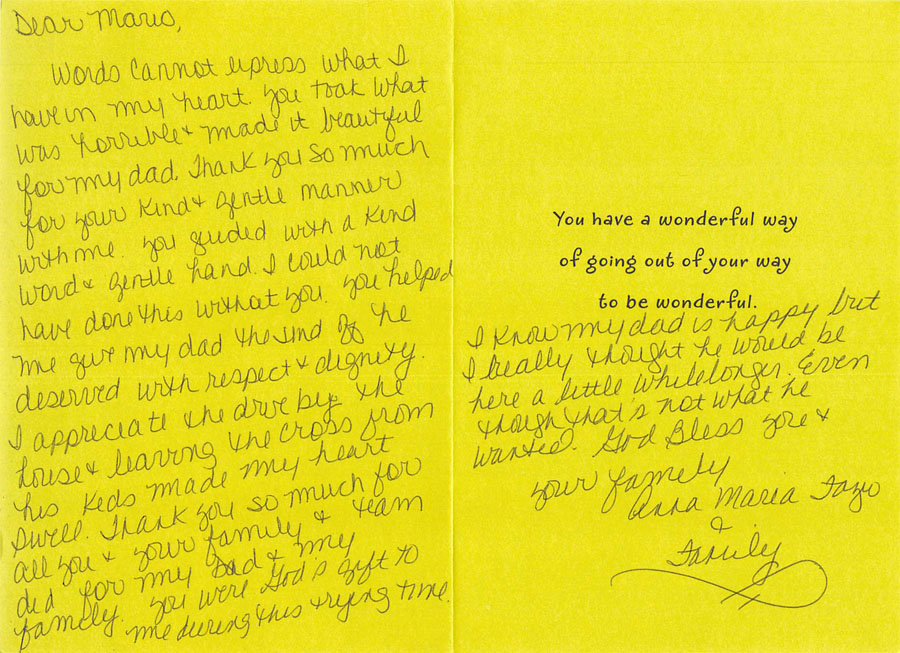 Dear Mario,
Words Cannot express what I
have in my heart. You took what
was horrible & made it beautiful
for my dad. Thank you so much
for your kind & gentle manner
with me. You guided with a kind
word & gentle hand. I could not
have done this without you. You helped
me give my dad the send off he
deserved with respect & dignity.
I appreciate the drive by the
house & leaving the cross from
his kids made my heart
swell. Thank you so much for
all you & your family & team
did for my Dad & my
family. You were God's gift to
me during this trying time.
You have a wonderful way
of going out of your way
to be wonderful.
I know my dad is happy but
I really thought he would be
here a little while longer. Even
though that's not what he
wanted. God Bless you &
your family
Anna Maria
&
Family